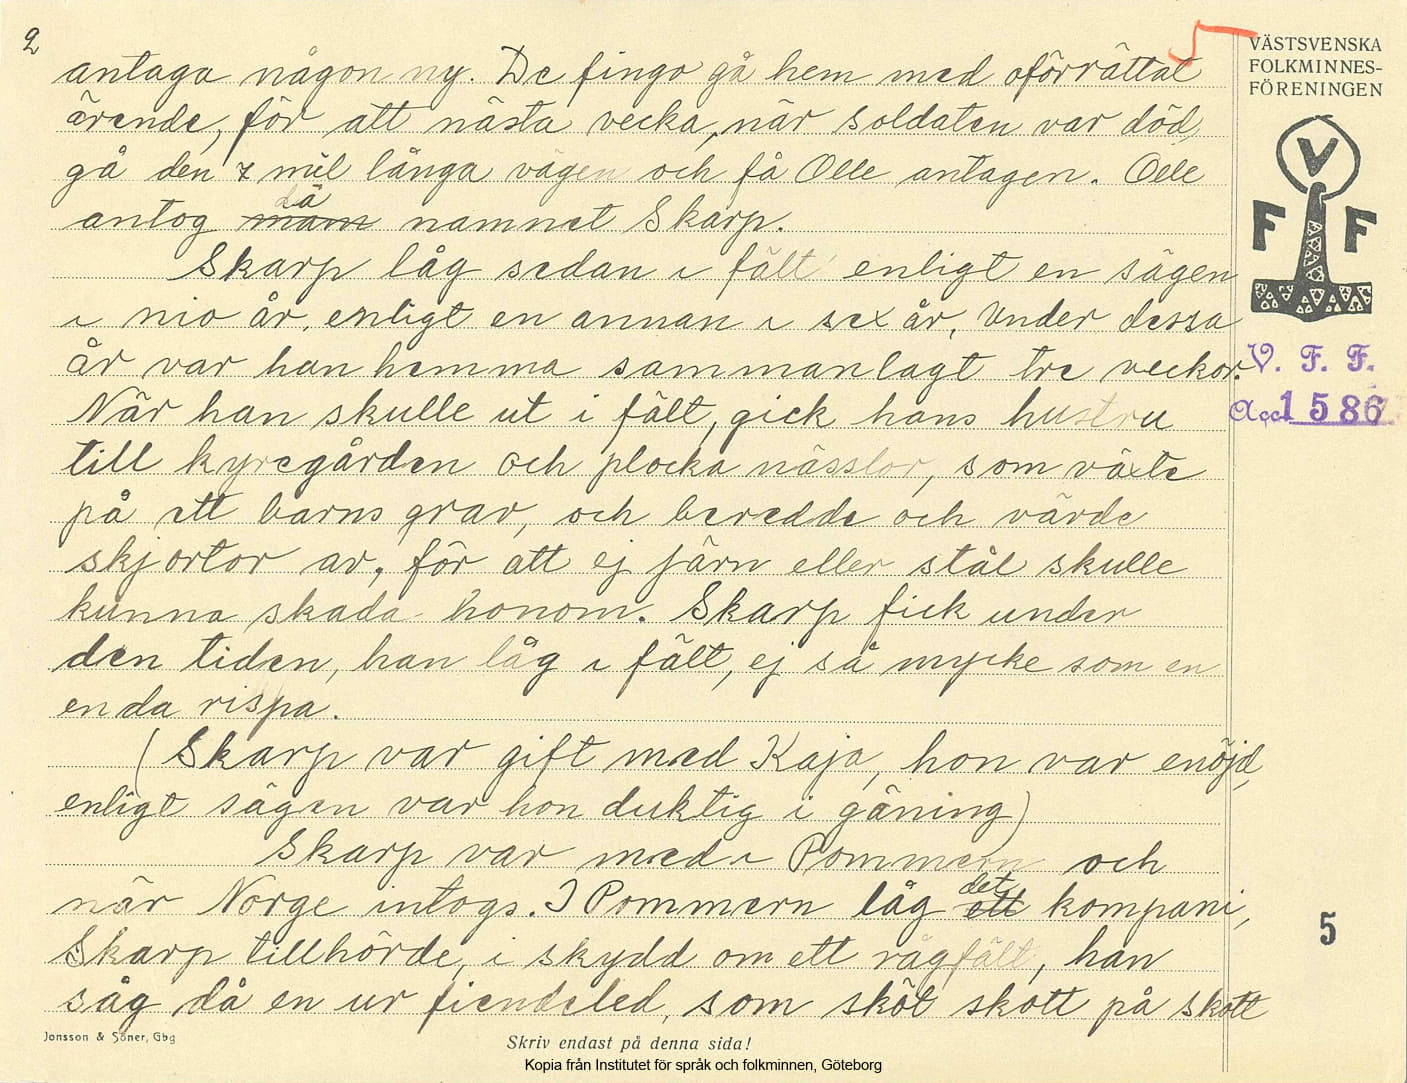 2
5
antaga någon ny. De fingo gå hem med oförrättat
ärende, för att nästa vecka, när soldaten var död,
gå den 7 mil långa vägen och få Olle antagen. Olle
antog då namnet Skarp.
Skarp låg sedan i fält enligt en sägen
i nio år, enligt en annan i sex år. Under dessa
år var han hemma sammanlagt tre veckor.
När han skulle ut i fält, gick hans hustru
till kyrcgården och plocka nässlor, som växte
på ett barns grav, och beredde och värde
skjortor av, för att ej järn eller stål skulle
kunna skada honom. Skarp fick under
den tiden, han låg i fält, ej så mycke som en
enda rispa.
(Skarp var gift med Kaja, hon var enöjd,
enligt sägen var hon duktig i gäning)
Skarp var med i Pommern och
när Norge intogs. I Pommern låg det kompani,
Skarp tillhörde, i skydd om ett rågfält, han
såg då en ur fiendeled, som sköt skott på skott
VÄSTSVENSKA
FOLKMINNES-
FÖRENINGEN
V
F F
V. F. F.
Acc 1586
5
Jonsson & Söner, Gbg
Skriv endast på denna sida!
Kopia från Institutet för språk och folkminnen, Göteborg